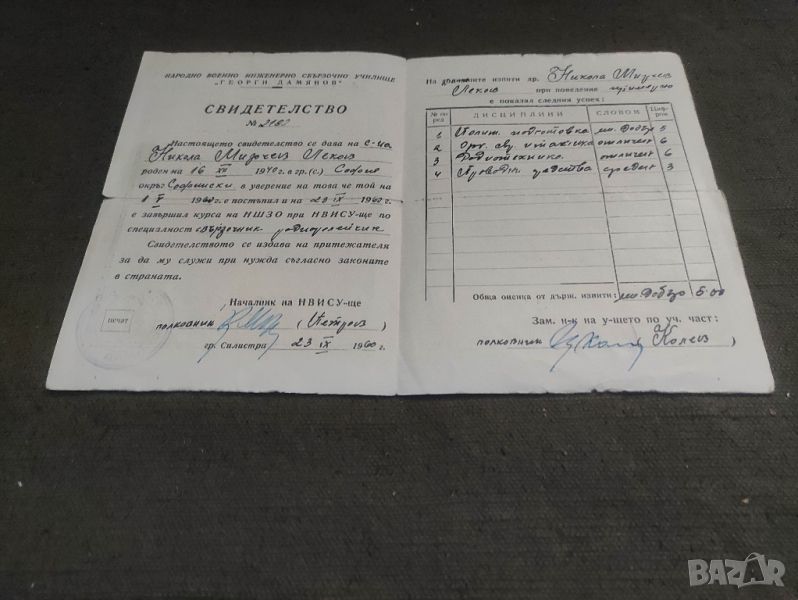 НАРОДНО ВОЕННО ИНЖЕНЕРНО СВЪРЗОЧНО УЧИЛИЩЕ
„ГЕОРГИ ДАМЯНОВ“
СВИДЕТЕЛСТВО
№
Настоящето свидетелство се дава на с-на
Никола
роден на 16 XII 1940 г. в гр. (с.) София
окръг Софийски в уверение на това че той на
1 V 1960 г. е постъпил и на IX 1960 г.
е завършил курса на НШЗО при НВИСУ-ще по
специалност свързочник
Свидетелството се издава на притежателя
за да му служи при нужда съгласно законите
в страната.
Началник на НВИСУ-ще
печат
полковник (Петров)
гр. Силистра 23 IX 1960 г.
На изпити др. Никола
Леков при поведение примерно
е показал следния успех:
№ по ред ДИСЦИПЛИНИ СЛОВОМ Цифром
1 Полит. подготовка мн. добър 5
2 тактика отличен 6
3 Радиотехника отличен 6
4 Проводни средства среден 3
Обща оценка от държ. изпити: мн. добър 5.00
Зам. н-к на у-щето по уч. част:
полковник Колев)
BAZAR